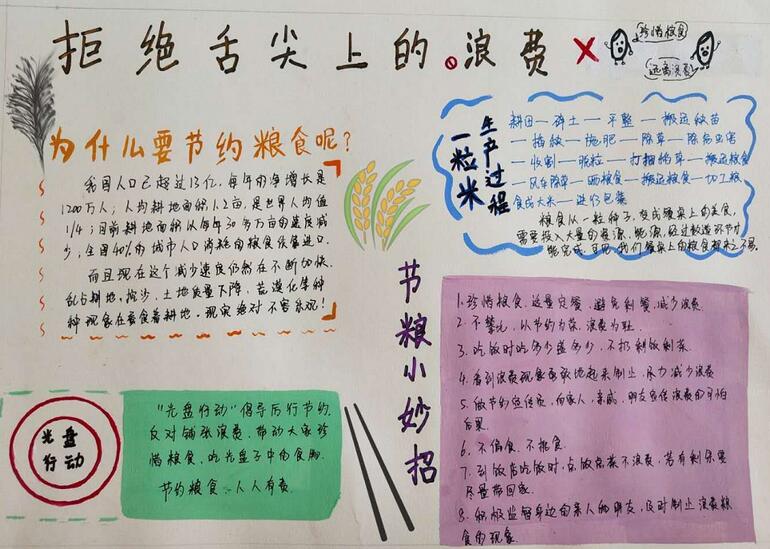 拒绝舌尖上的浪费
珍惜粮食
远离浪费
为什么要节约粮食呢?
我国人口已超过13亿,每年的净增长是
1200万人;人均耕地面积1.2亩,是世界人均值
1/4;目前耕地面积以每年30多万亩的速度减
少,全国40%的城市人口消耗的粮食依靠进口.
而且现在这个减少速度仍然在不断加快.
乱占耕地,挖沙,土地质量下降,荒漠化等种
种现象在蚕食着耕地,现实绝对不容乐观!
一粒米
生产过程
耕田—碎土—平整—搬运秧苗
—插秧—施肥—除草—除病虫害
—收割—脱粒—打捆稻草—搬运粮食
—风车除草—晒粮食—搬运粮食—加工粮
食成大米—进行包装
粮食从一粒种子,变成餐桌上的美食,
需要投入大量的资源,能源,经过数道环节才
能完成.可见,我们餐桌上的粮食都来之不易.
节粮小妙招
1.珍惜粮食,适量定餐,避免剩餐,减少浪费.
2.不攀比,以节约为荣,浪费为耻.
3.吃饭时吃多少盛多少,不扔剩饭剩菜.
4.看到浪费现象勇敢地起来制止,尽力减少浪费
5.做节约宣传员,向家人,亲戚,朋友宣传浪费的可怕
后果.
6.不偏食,不挑食.
7.到饭店吃饭时,点饭点菜不浪费,若有剩余要
尽量带回家.
8.积极监督身边的亲人和朋友,及时制止浪费粮
食的现象.
光盘
行动
“光盘行动”倡导厉行节约,
反对铺张浪费,带动大家珍
惜粮食,吃光盘子中的食物.
节约粮食,人人有责.